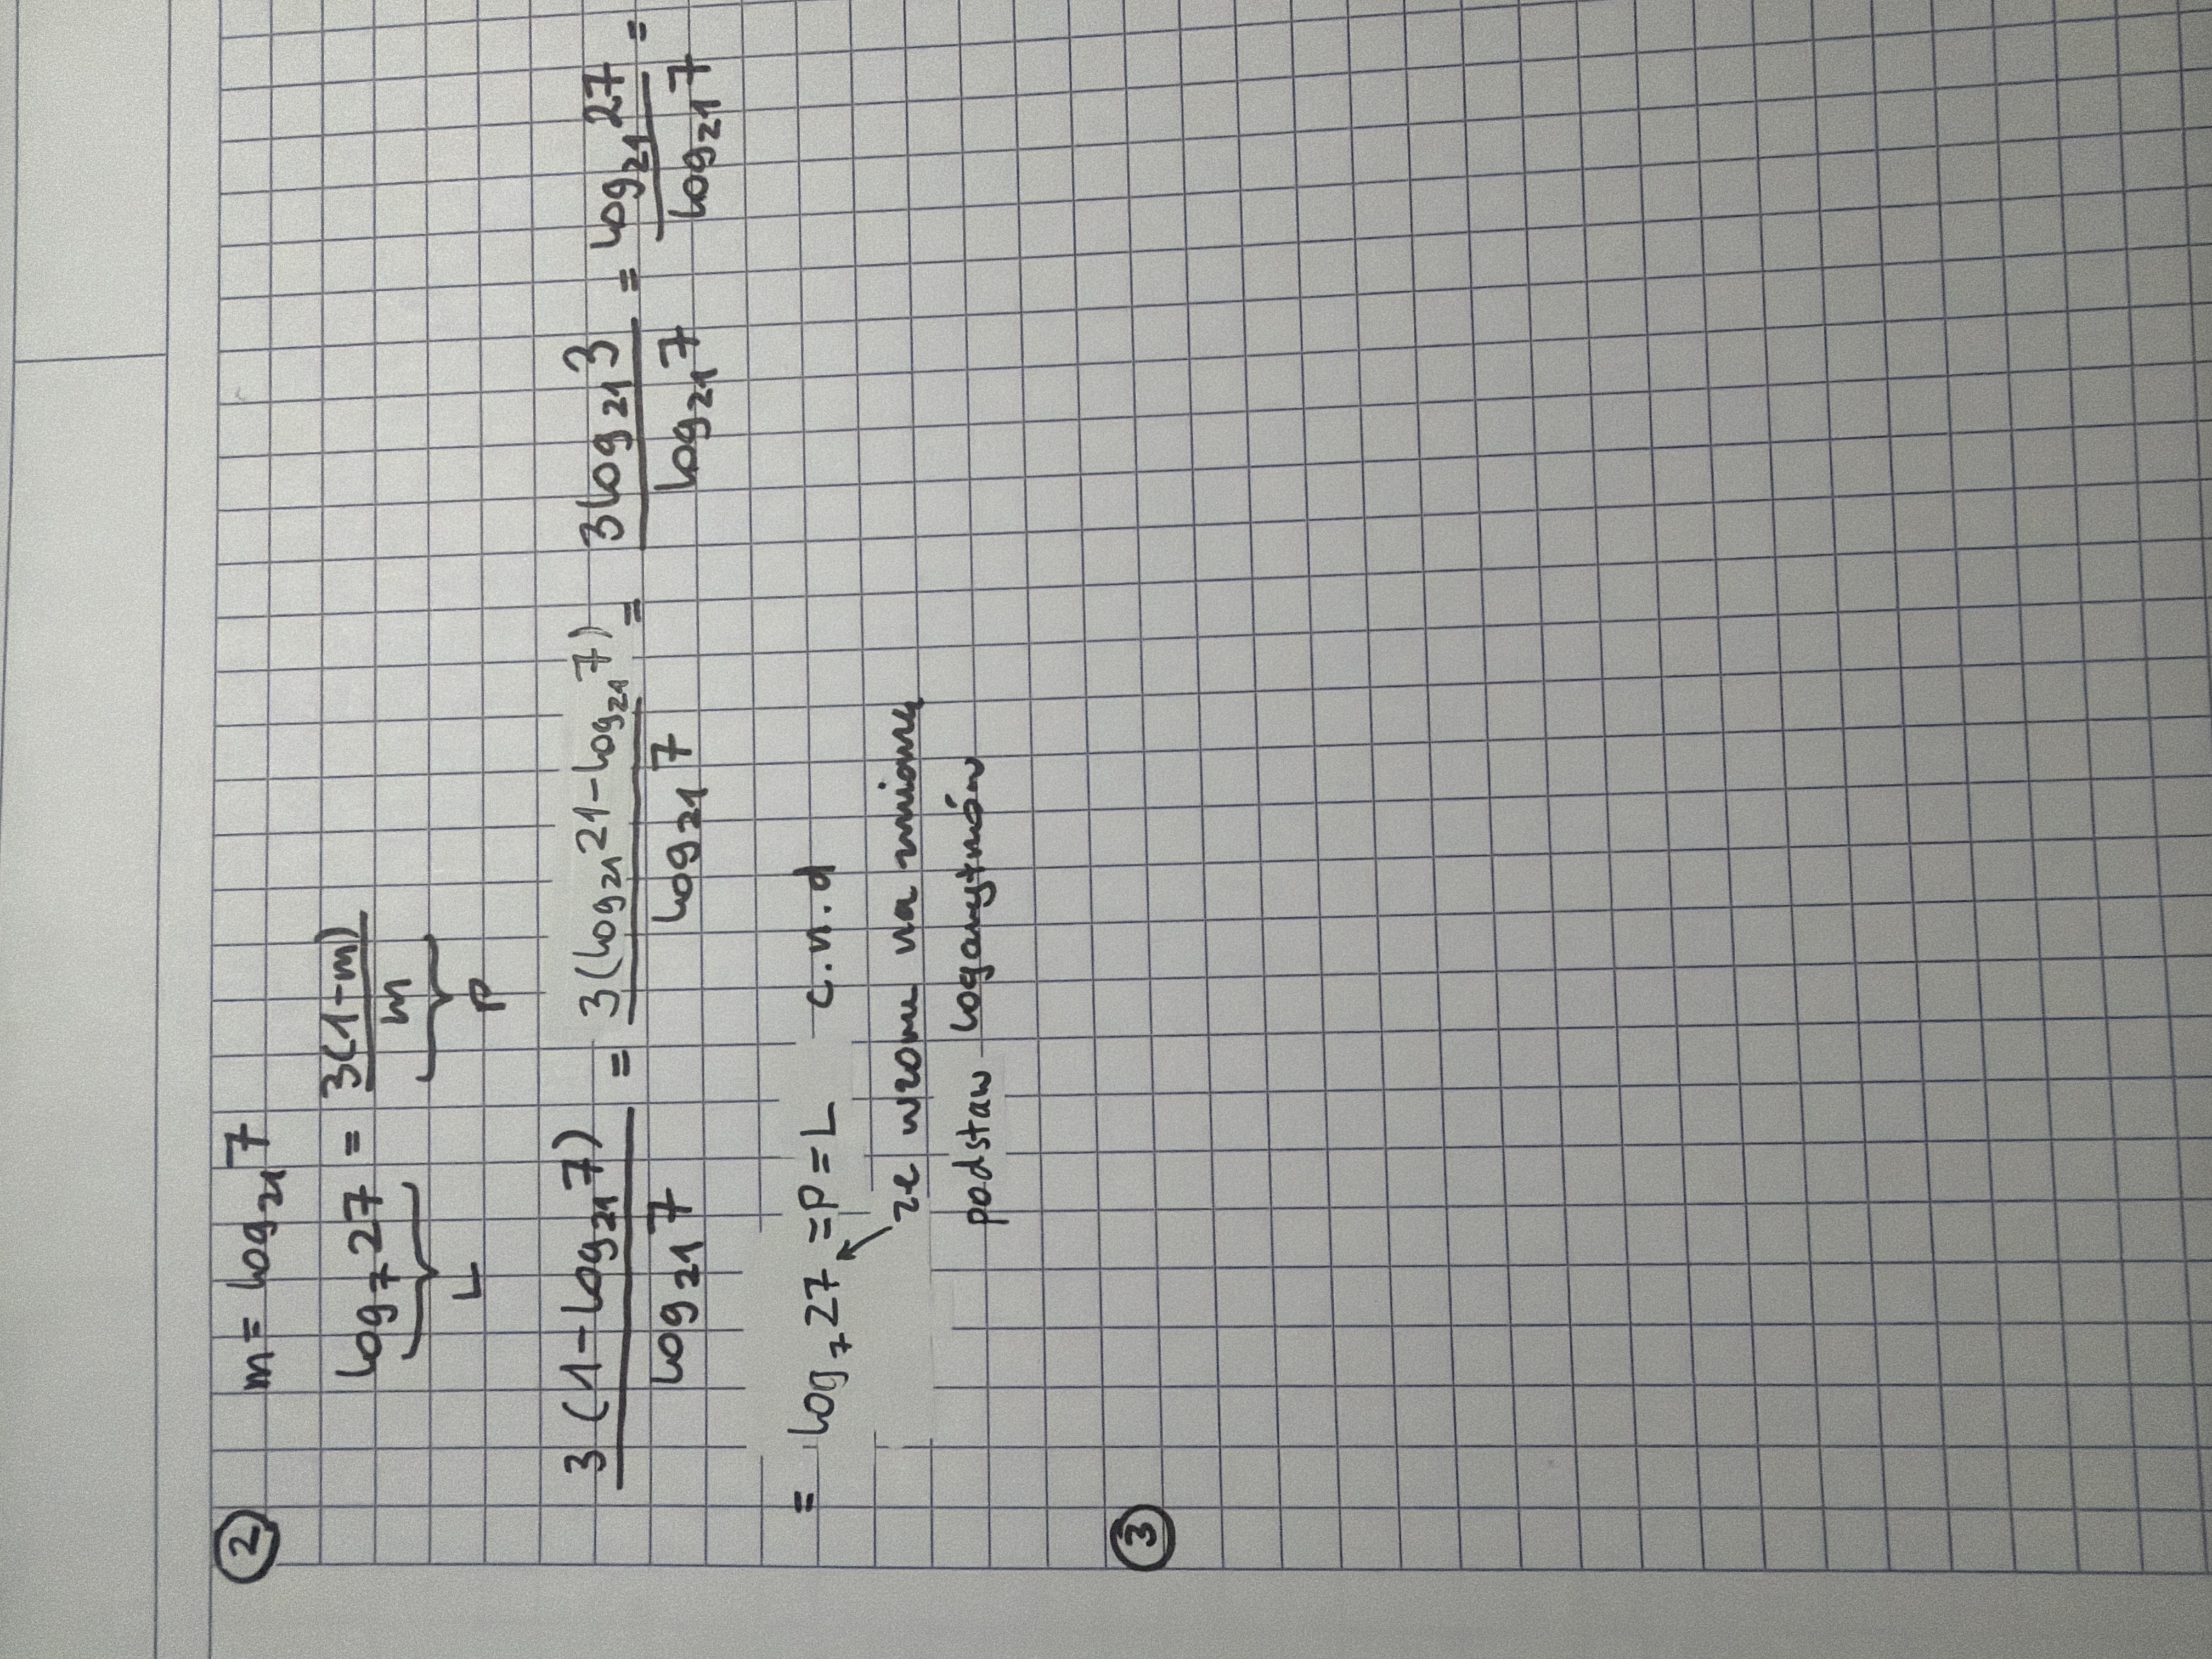 ② m = log₂₁7
log₇27 = 3(1-m)/m
L P
3(1-log₂₁7)/log₂₁7 = 3(log₂₁21-log₂₁7)/log₂₁7 = 3log₂₁3/log₂₁7 = log₂₁27/log₂₁7 =
= log₇27 = P = L c.n.d
ze wzoru na zmianę
podstaw logarytmów
③